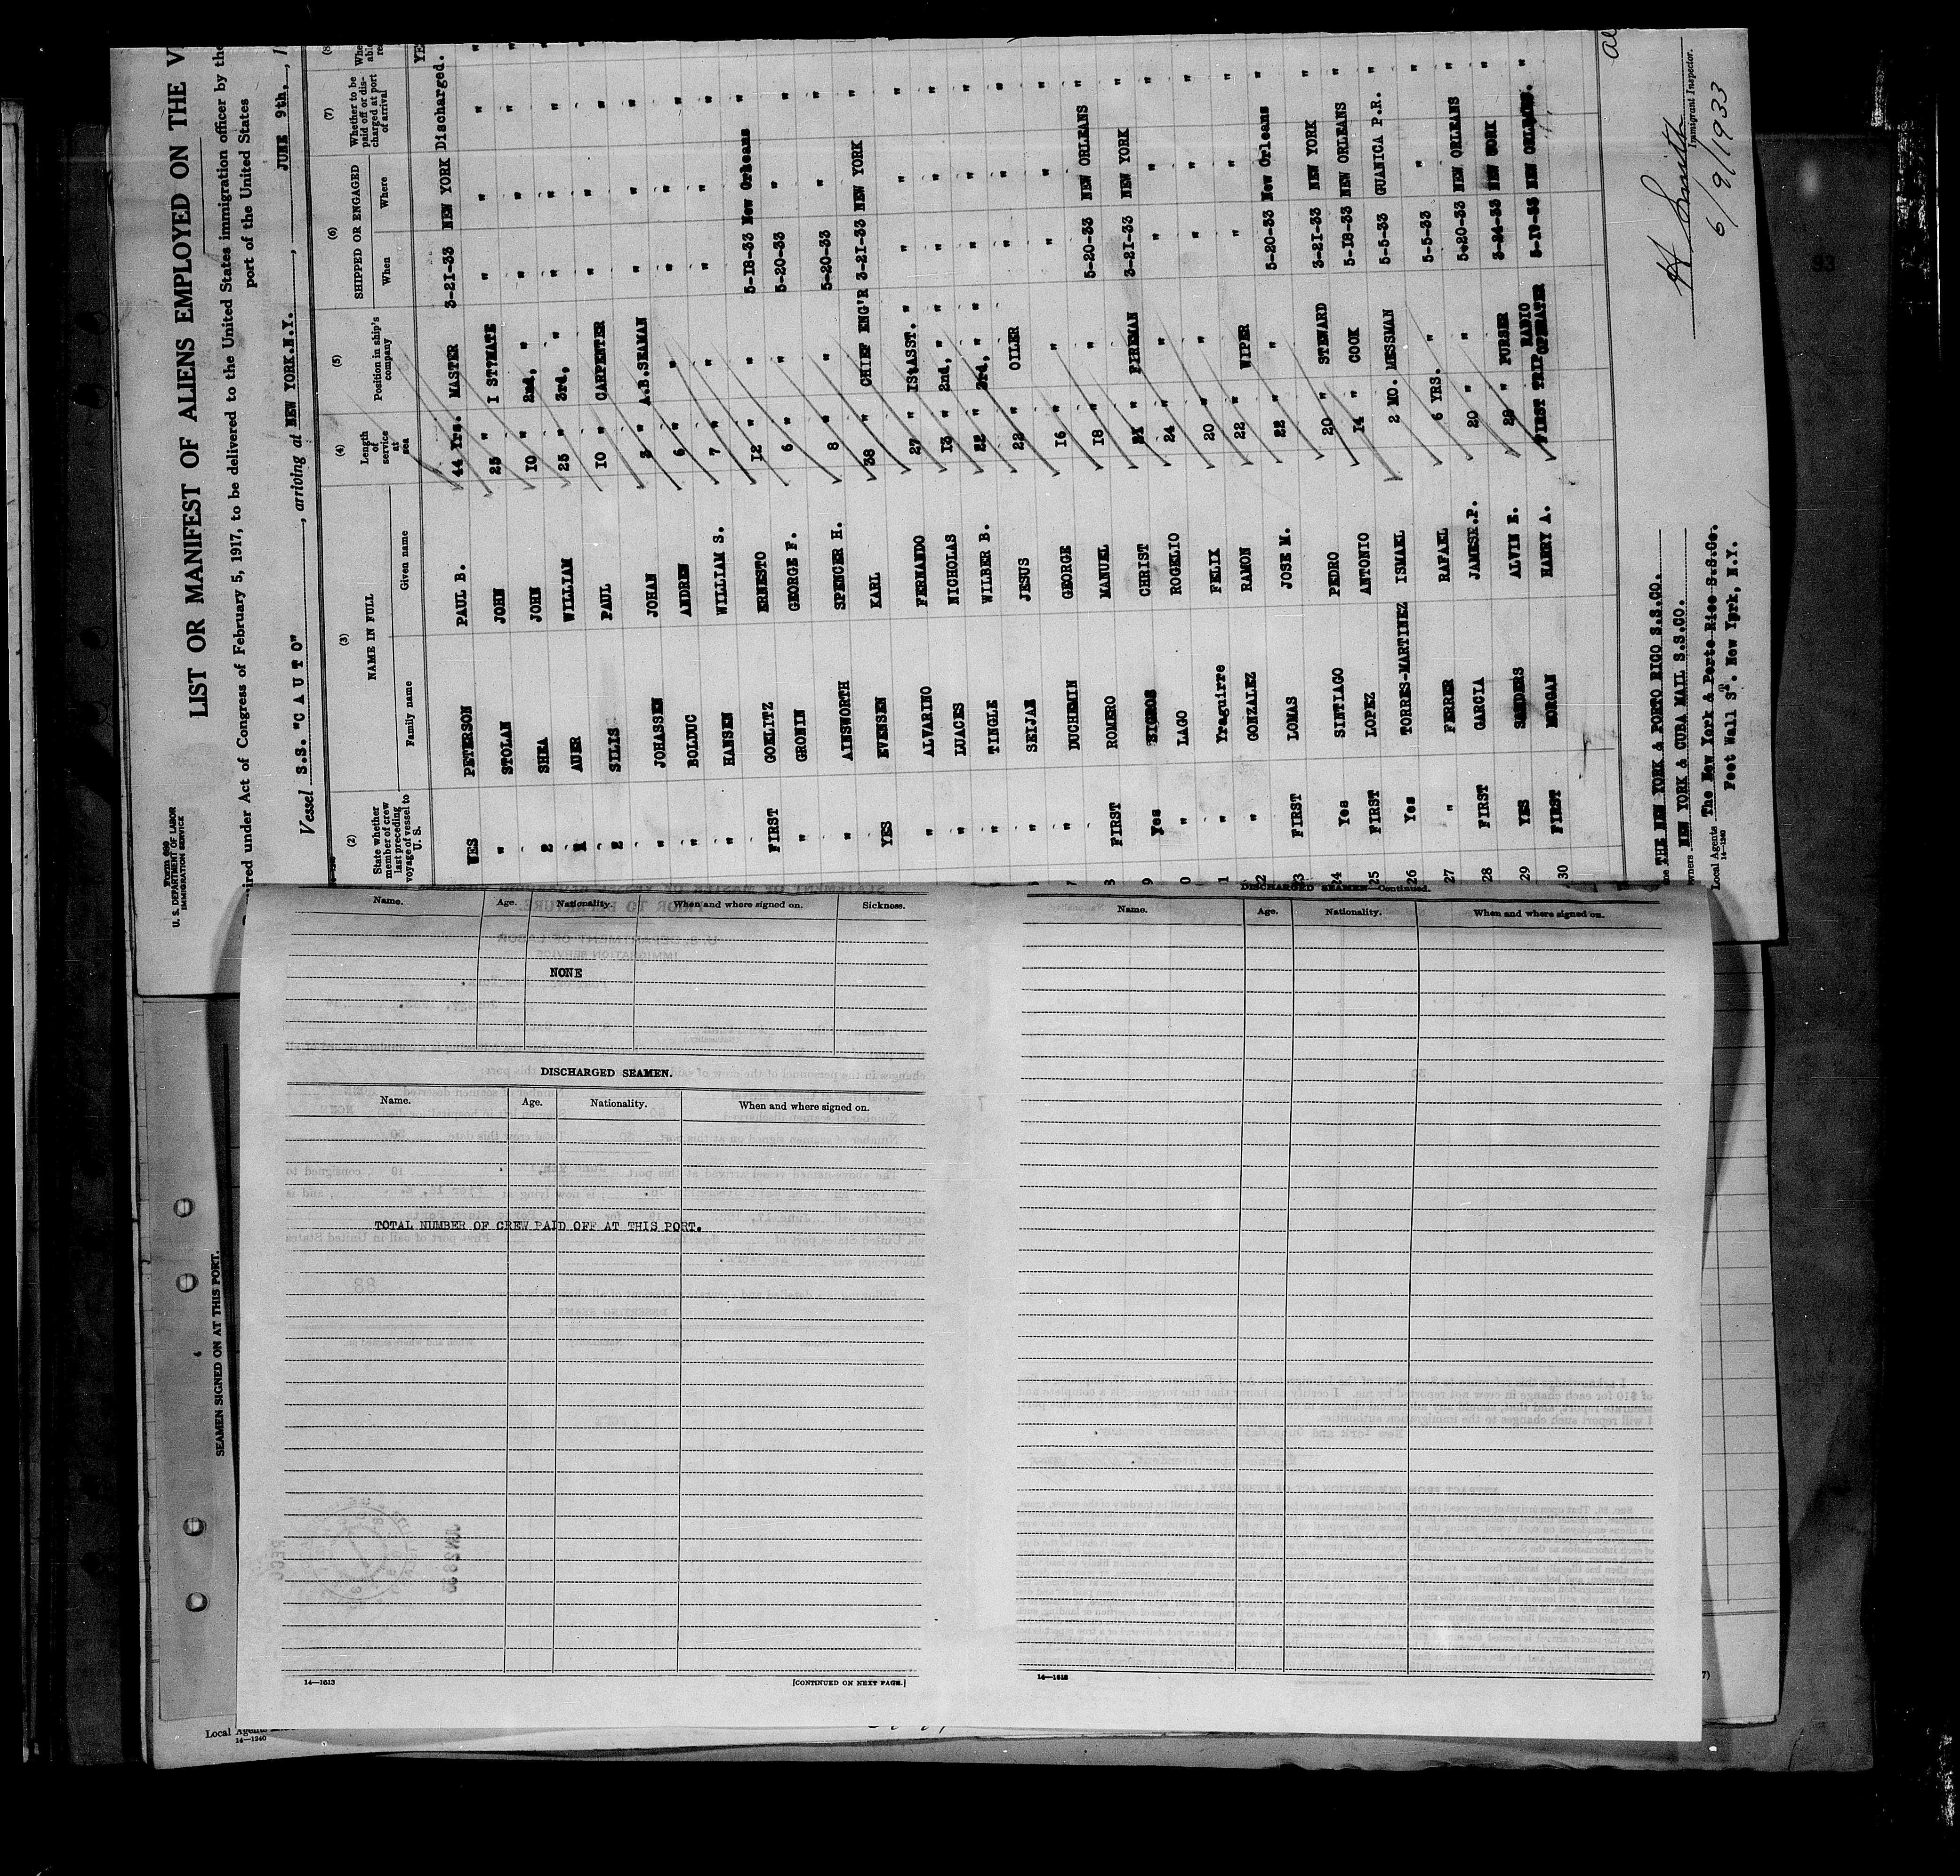 Form 699
U. S. DEPARTMENT OF LABOR
IMMIGRATION SERVICE
LIST OR MANIFEST OF ALIENS EMPLOYED ON THE
ired under Act of Congress of February 5, 1917, to be delivered to the United States immigration officer by the
port of the United States
Vessel S.S. "C A U T O", arriving at NEW YORK.N.Y., JUNE 9th,
(2) (3) (4) (5) (6) (7)
State whether member of crew last preceding voyage of vessel to U. S.
NAME IN FULL
Family name Given name
Length of service at sea
Position in ship's company
SHIPPED OR ENGAGED
When Where
Whether to be paid off or discharged at port of arrival
YES PETERSON PAUL B. 44 Yrs. MASTER 3-21-33 NEW YORK Discharged. "
" STOLAN JOHN 25 " I STMATE " " " "
" 2 SHEA JOHN 10 " 2nd, " " " " "
" AUER WILLIAM 25 " 3rd, " " " " "
" 2 SILIS PAUL 10 " CARPENTER " " " "
" JOHASSEN JOHAN " A.B.SEAMAN " " " "
" BOLDUC ANDREW 6 " " " " " "
" HANSEN WILLIAM S. 7 " " " " " "
FIRST GOELITZ ERNESTO 12 " " 5-18-33 New Orleans " "
" GRONIN GEORGE F. 6 " " 5-20-33 " " "
" AINSWORTH SPENCER H. 8 " " 5-20-33 " " "
YES EVENSEN KARL 38 " CHIEF ENG'R 3-21-33 NEW YORK " "
" ALVARINO FERNANDO 27 " IStASST. " " " " "
" LUACES NICHOLAS 13 " 2nd, " " " " " "
" TINGLE WILBER B. 22 " 3rd, " " " " " "
" SEIJAN JESUS 22 " OILER " " " "
" DUCHEMIN GEORGE 16 " " " " " "
FIRST ROMERO MANUEL 18 " " 5-20-33 NEW ORLEANS " "
Yes CHRIST 21 " FIREMAN 3-21-33 NEW YORK " "
" LAGO ROGELIO 24 " " " " " "
" Yraguirre FELIX 20 " " " " " "
" GONZALEZ RAMON 22 " WIPER " " " "
FIRST LOMAS JOSE M. 22 " " 5-20-33 New Orleans " "
24 Yes SINTIAGO PEDRO 20 " STEWARD 3-21-33 NEW YORK " "
25 FIRST LOPEZ ANTONIO 14 " COOK 5-18-33 NEW ORLEANS " "
26 Yes TORRES-MARTINEZ ISMAEL 2 MO. MESSMAN 5-5-33 GUANICA P.R. " "
27 " FERRER RAFAEL 6 YRS. " 5-5-33 " " "
28 FIRST GARCIA JAMESE.P. 20 " " 5-20-33 NEW ORLEANS " "
29 YES SANDERS ALVIN E. 28 " PURSER 3-24-33 NEW YORK " "
30 FIRST MORGAN HARRY A. FIRST TRIP RADIO OPERATER 5-19-33 NEW ORLEANS. "
THE NEW YORK & PORTO RICO S.S.CO.
wners NEW YORK & CUBA MAIL S.S.CO.
Local Agents The New York & Porto Rico S.S.Co.
14—1240
Foot Wall St. New York, N.Y.
H Smith
Immigrant Inspector.
6/9/1933
Name. Age. Nationality. When and where signed on. Sickness.
NONE
DISCHARGED SEAMEN.
Name. Age. Nationality. When and where signed on.
TOTAL NUMBER OF CREW PAID OFF AT THIS PORT.
14—1613
[CONTINUED ON NEXT PAGE.]
DISCHARGED SEAMEN—Continued.
Name. Age. Nationality. When and where signed on.
14—1613
SEAMEN SIGNED ON AT THIS PORT.
Local Agents
14—1240